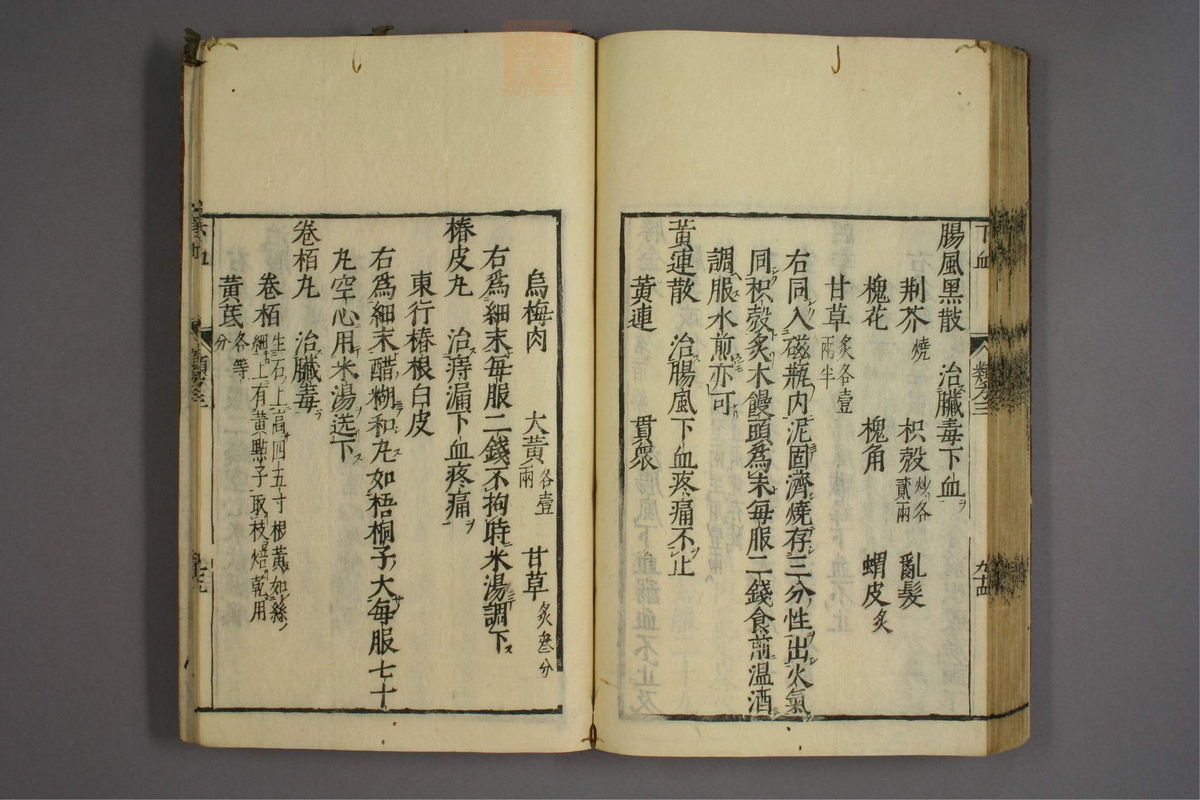 下血
腸風黑散　治臟毒下血ヲ
荆芥燒　枳殼炒各貳兩　亂髮
槐花　槐角　蝟皮炙
甘草炙各壹兩半
右同入磁瓶内泥固濟燒存三分性出火氣
同枳殼炙木饅頭爲末每服二錢食前温酒
調服水煎亦可
黃連散　治腸風下血疼痛不止
黃連　貫衆
烏梅肉　大黃各壹兩　甘草炙叁分
右爲細末每服二錢不拘時米湯調下
椿皮丸　治痔漏下血疼痛
東行椿根白皮
右爲細末醋糊和丸如梧桐子大每服七十
丸空心用米湯送下
卷栢丸　治臟毒
卷栢生石上高四五寸根黃如絲細上有黃點子取枝焙乾用
黃芪各等分